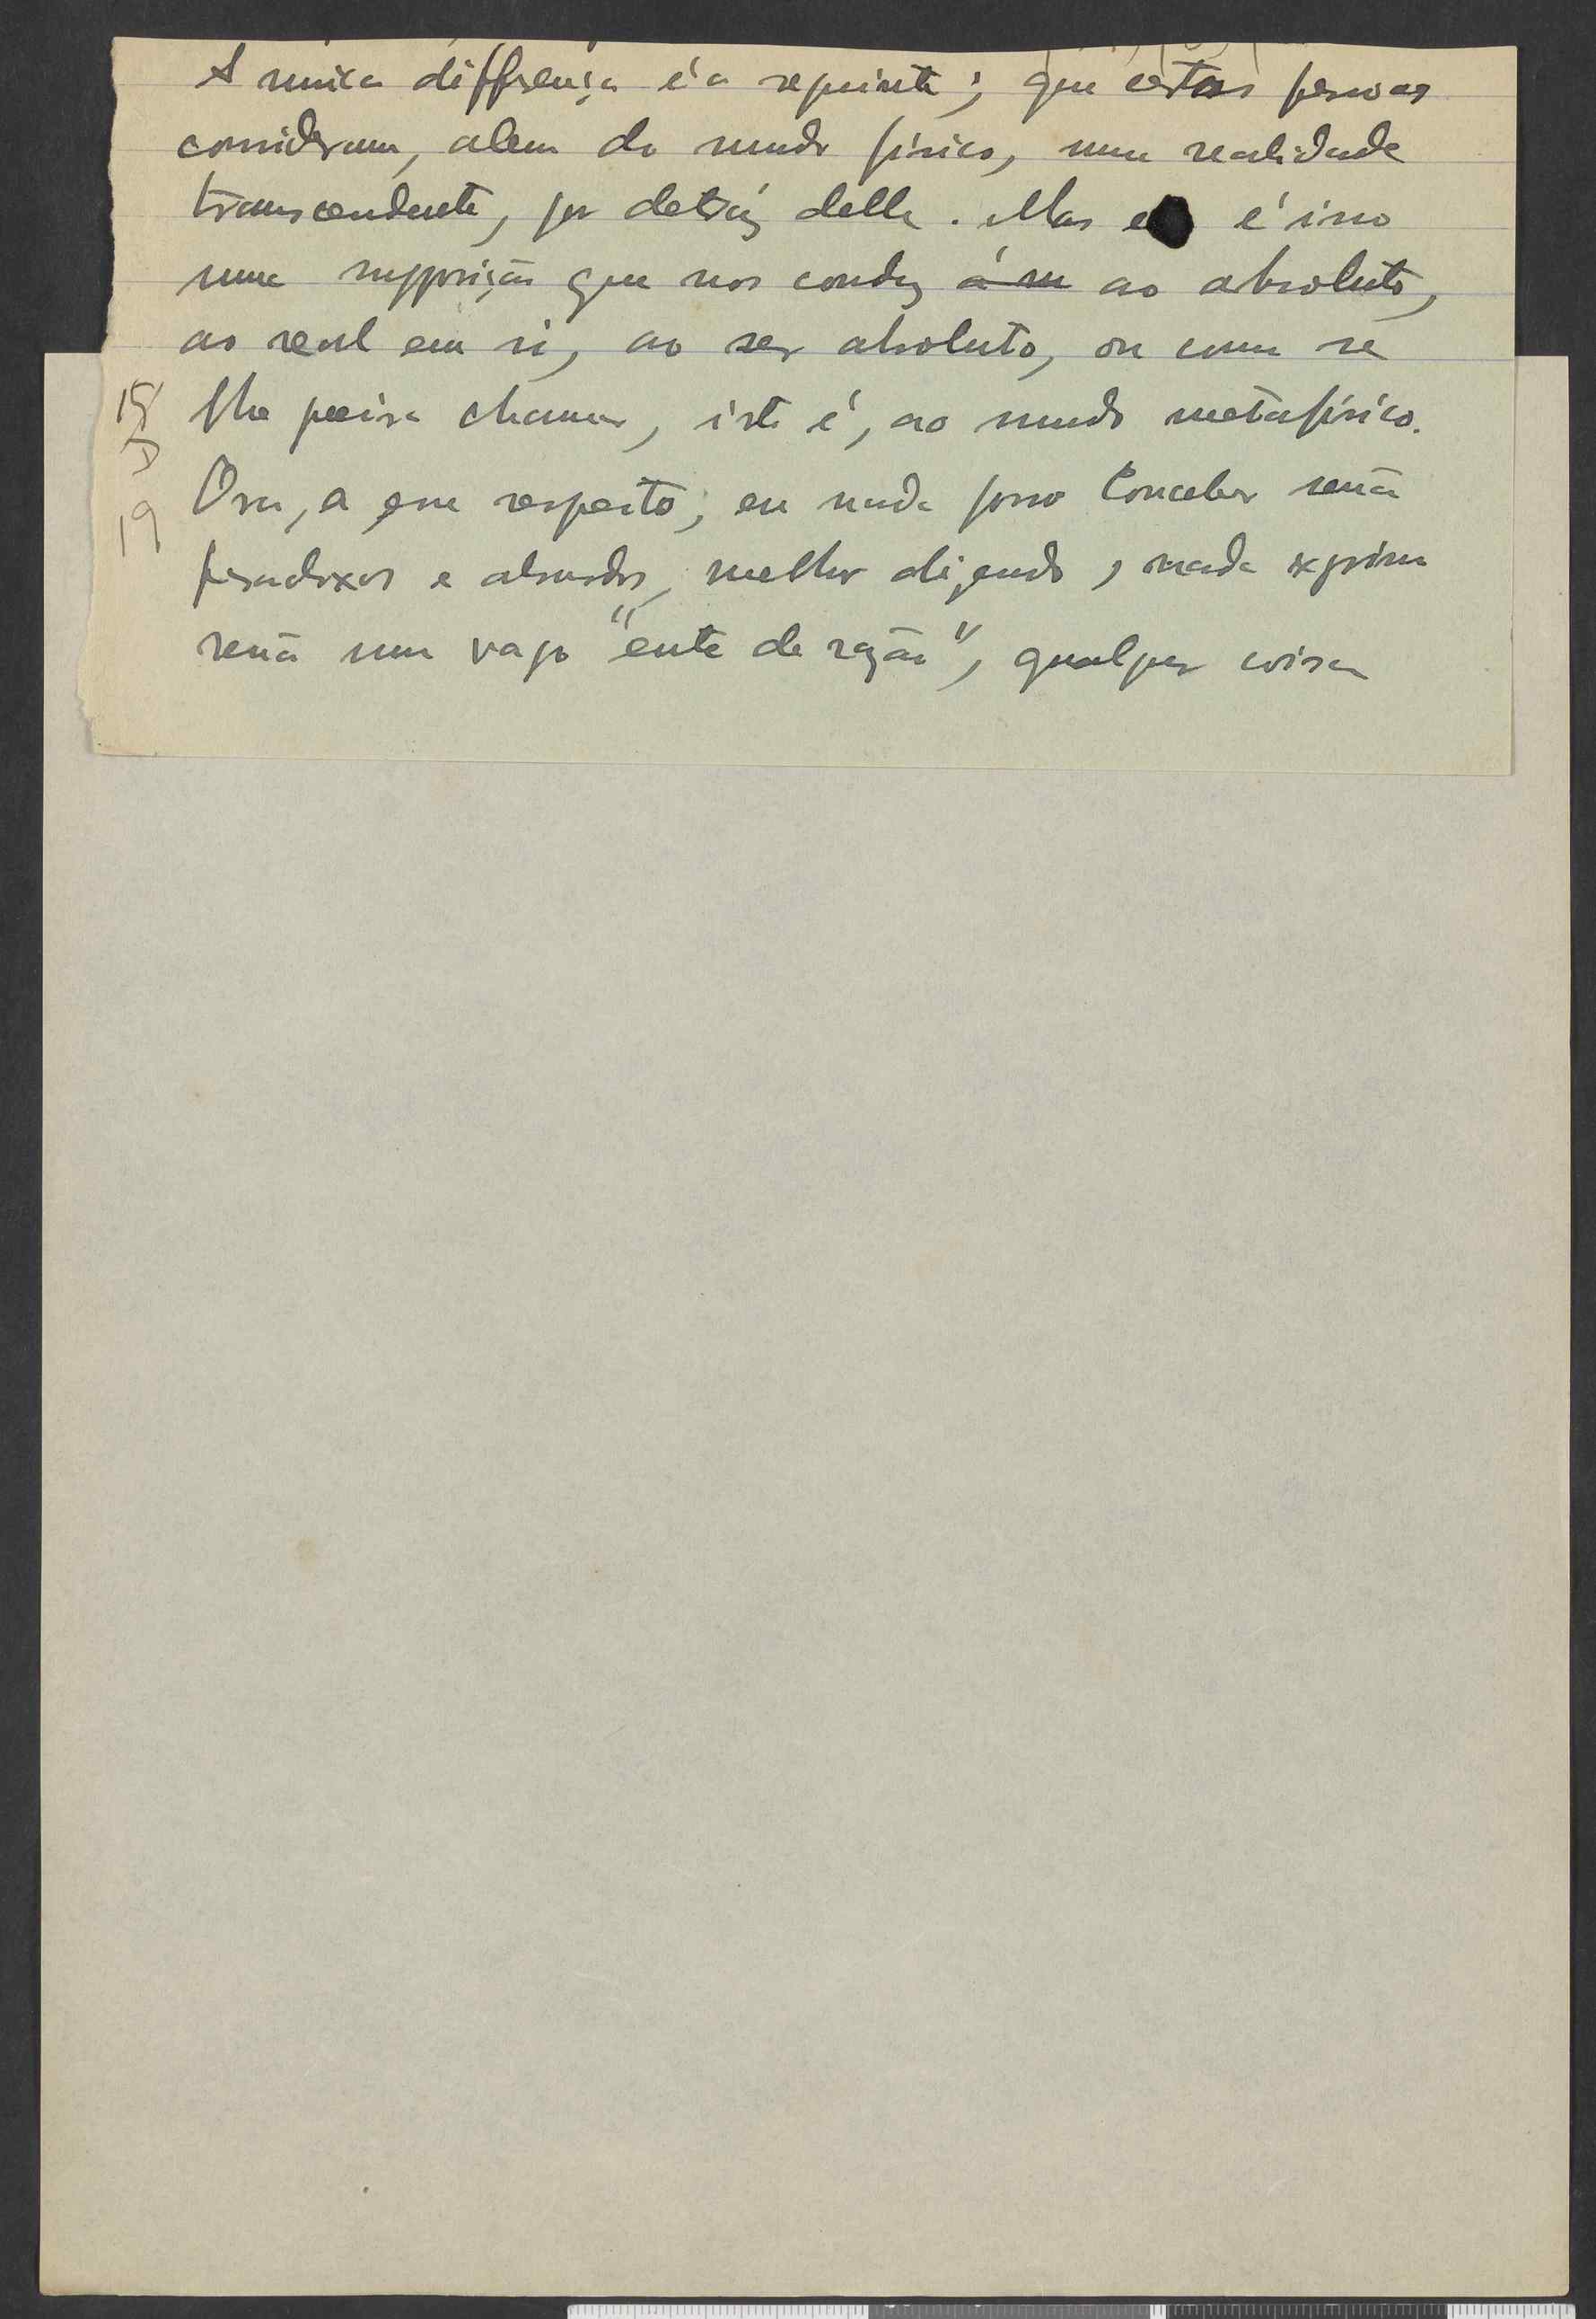 A unica differença é a seguinte; que estas pessoas
consideram, alem do mundo fisico, uma realidade
transcendente, por detrás delle. Mas é isso
uma supposição que nos conduz á su ao absoluto,
ao real em si, ao ser absoluto, ou como se
lhe queira chamar, isto é, ao mundo metafisico.
Ora, a esse respeito, eu nada posso conceber senão
paradoxos e absurdos, melhor dizendo, nada exprimo
senão um vago "ente de razão", qualquer coisa
18
19